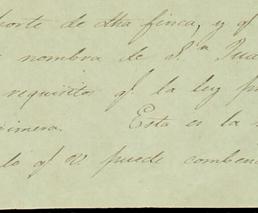 porte de dha finca, y q.
nombra de d.ª Jua
requisitos q.e la ley pr
rimera. Esta es la
lo q.e V. puede